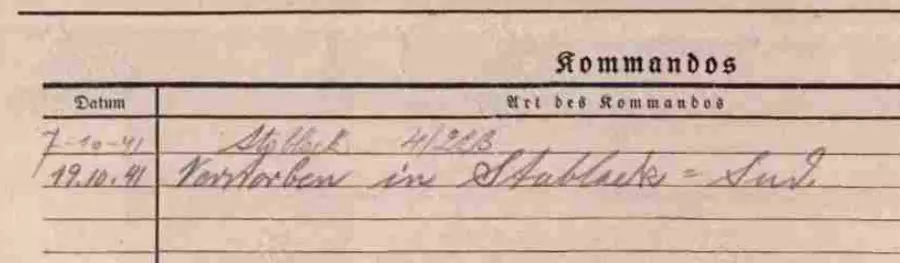 Kommandos
Datum Art des Kommandos
7-10-41 Stablack
19.10.41 Verstorben in Stablack = Süd.